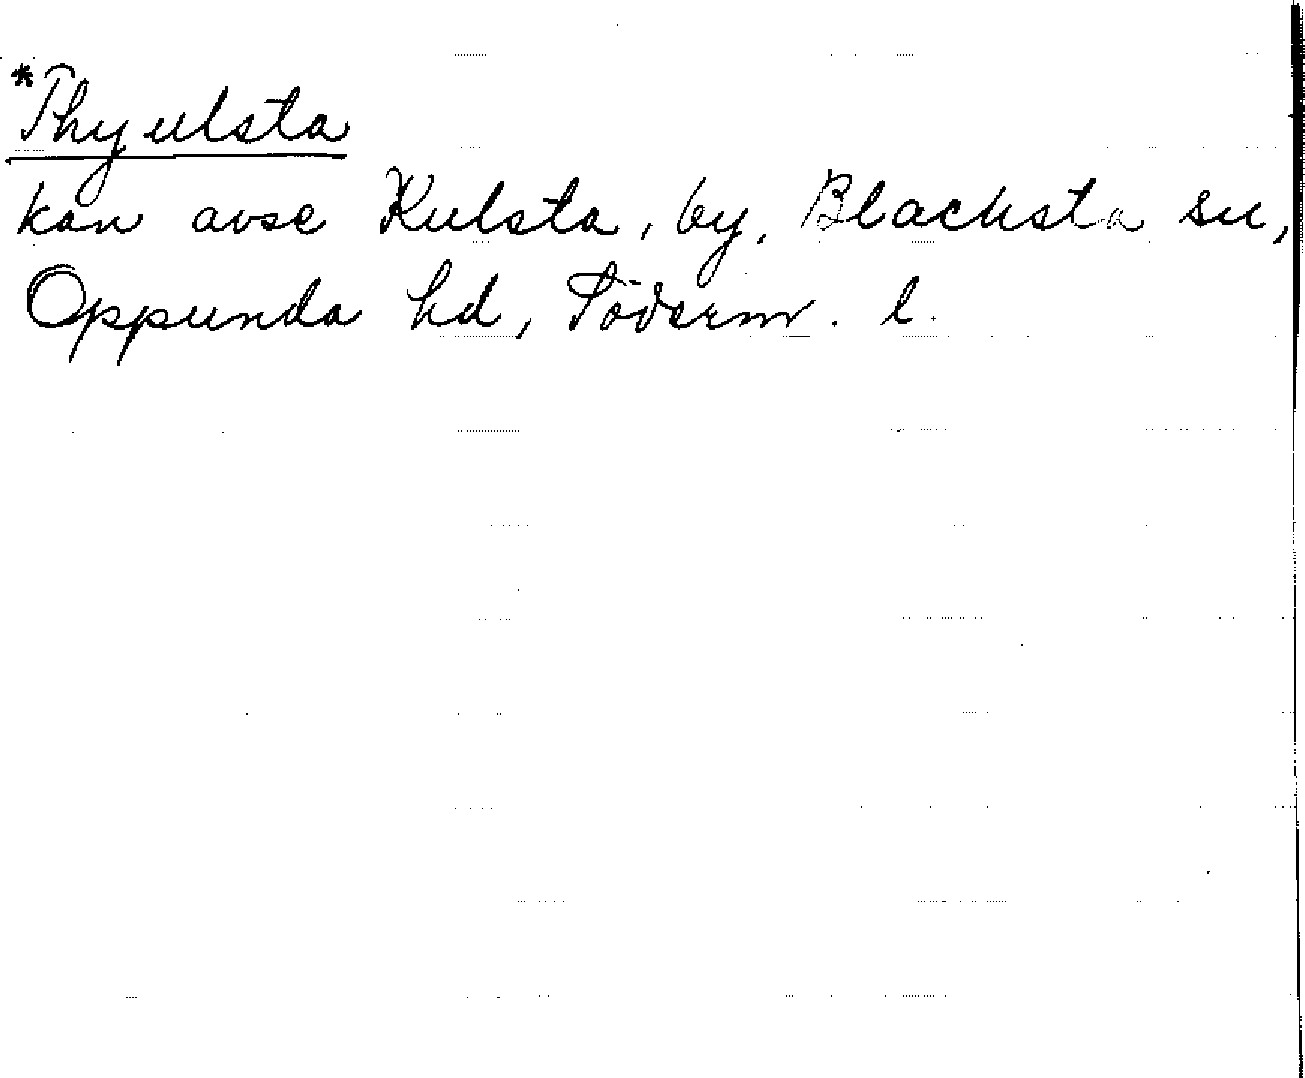 *Thyulsta
kan avse Kulsta, by, Blacksta sn,
Oppunda hd, Söderm. l.